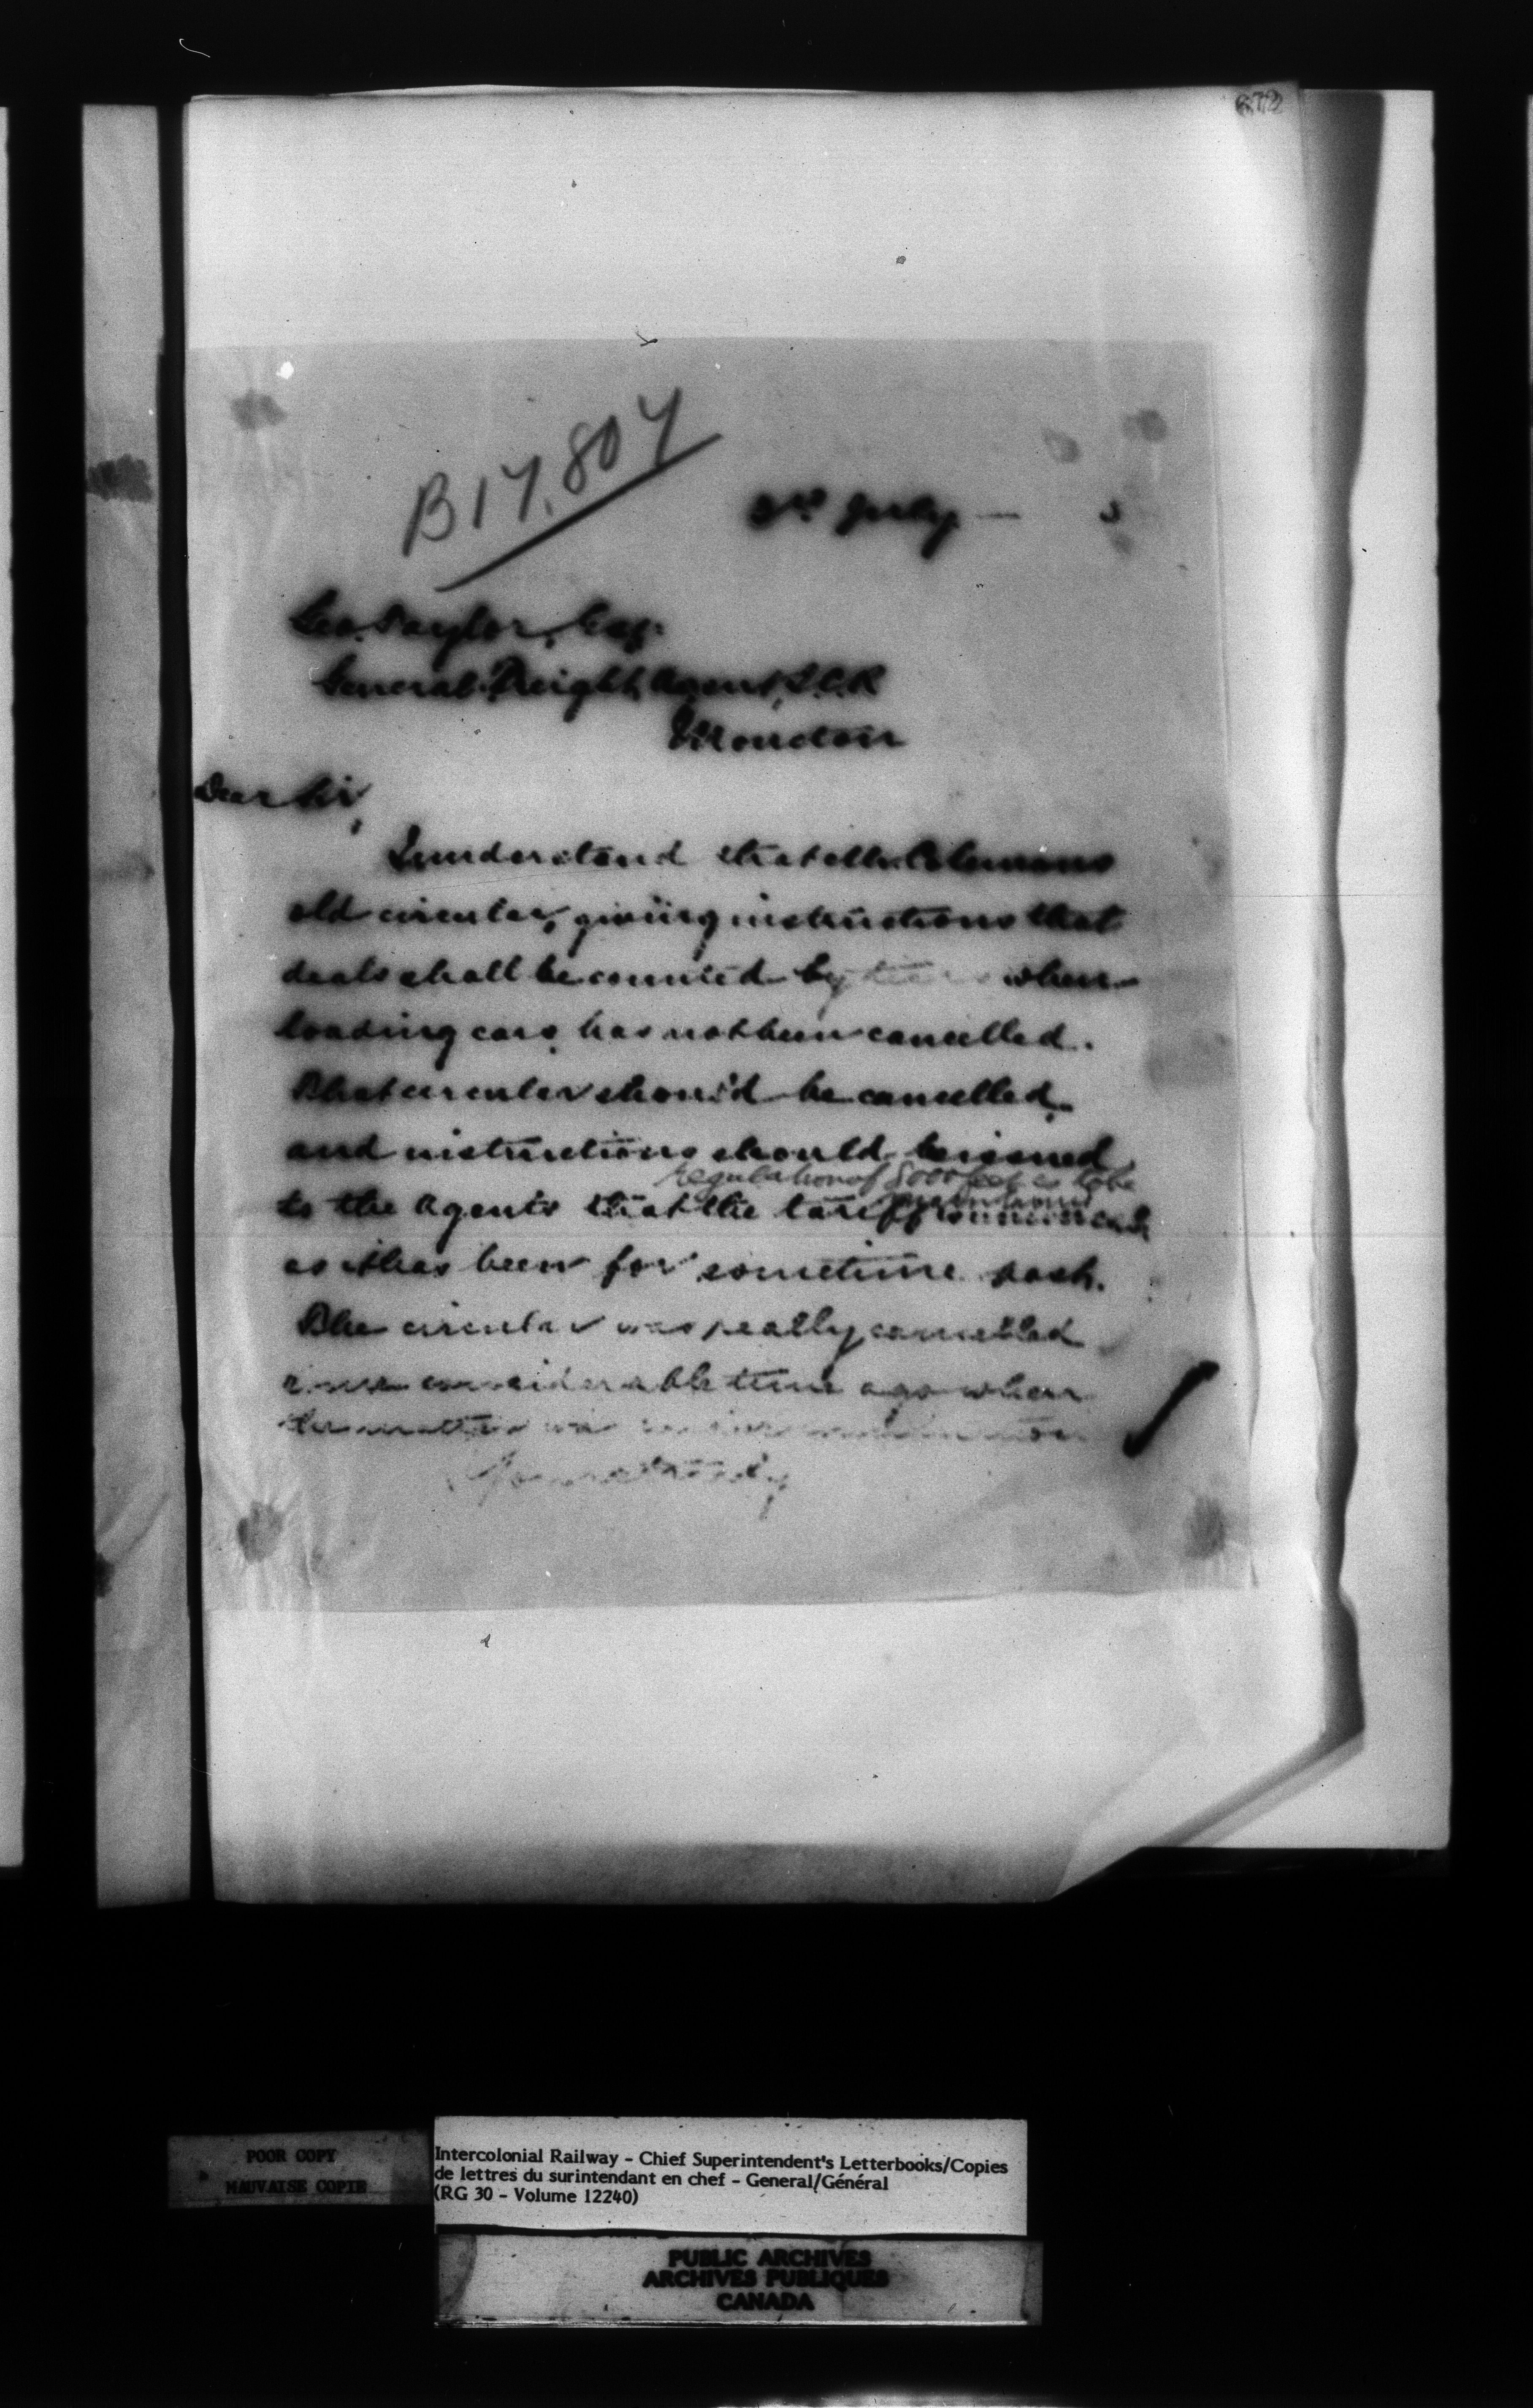 672
B17,807
3rd July — 5
Geo. Taylor, Esq.
General Freight Agent, I.C.R
Moncton
Dear Sir,
I understand that Mr.
old circular, giving instructions that
deals shall be counted by tiers when
loading cars, has not been cancelled.
That circular should be cancelled
and instructions should be issued
regulation of 8000 feet is to be
to the Agents that the tariff
as it has been for sometime past.
The circular was really cancelled
considerable time ago when
the matter was
Yours truly
POOR COPY
MAUVAISE COPIE
Intercolonial Railway - Chief Superintendent's Letterbooks/Copies
de lettres du surintendant en chef - General/Général
(RG 30 - Volume 12240)
PUBLIC ARCHIVES
ARCHIVES PUBLIQUES
CANADA